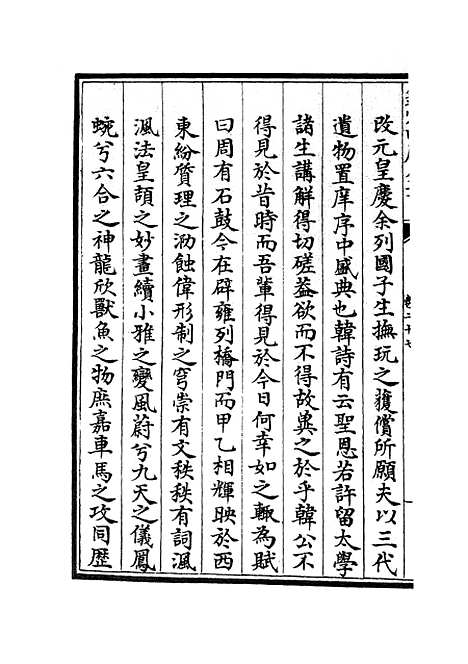 改元皇慶余列國子生撫玩之獲償所願夫以三代
遺物置庠序中盛典也韓詩有云聖恩若許留太學
諸生講解得切磋葢欲而不得故冀之於乎韓公不
得見於昔時而吾輩得見於今日何幸如之輙為賦
曰周有石鼓今在辟雍列橋門而甲乙相輝映於西
東紛質理之泐蝕偉形制之穹崇有文秩秩有詞渢
渢法皇頡之妙畫續小雅之變風蔚兮九天之儀鳳
蜿兮六合之神龍欣獸魚之物庶嘉車馬之攻同歴
卷二十七